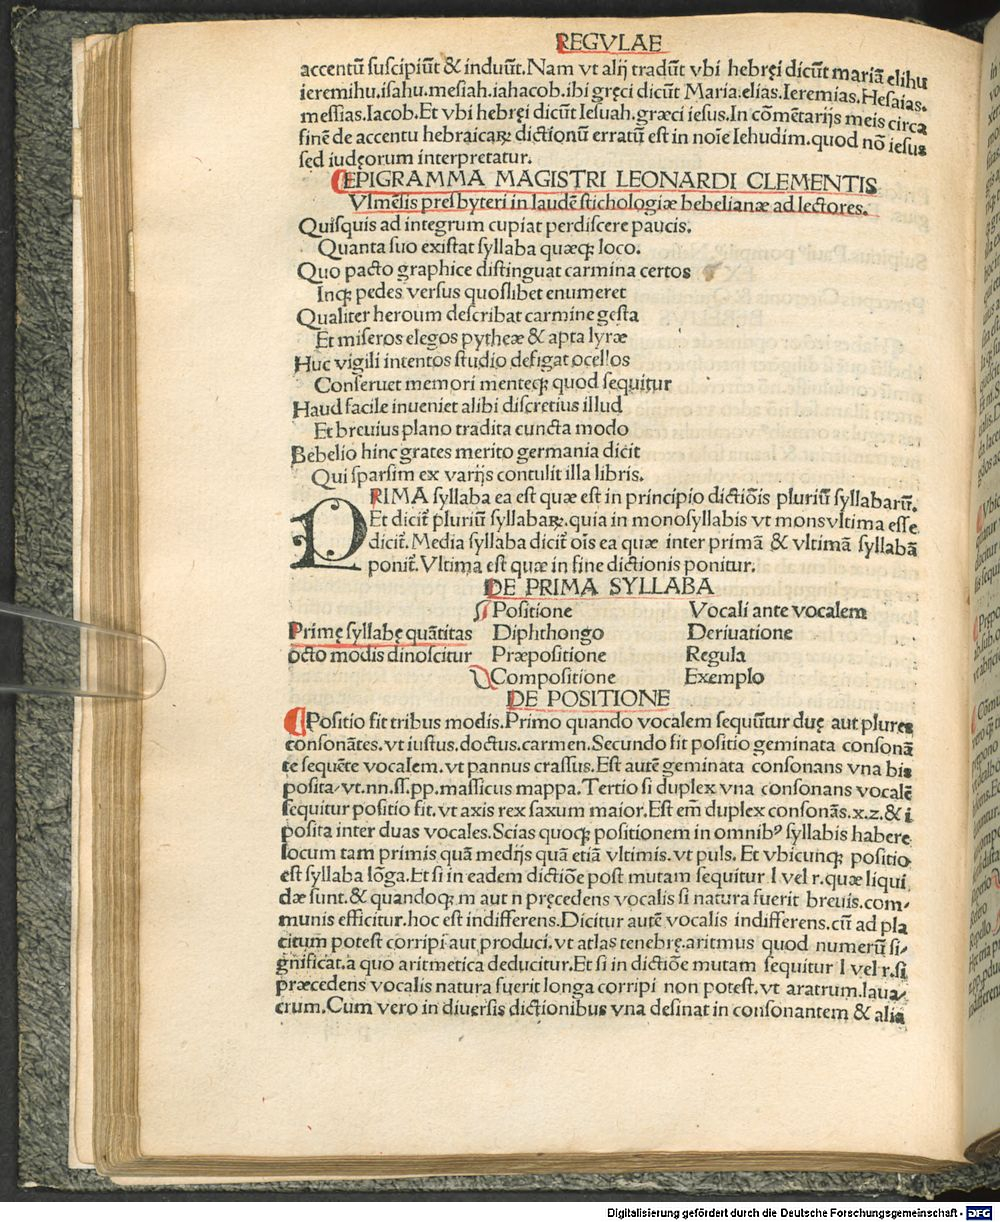 REGVLAE
accentū suscipiūt & induūt. Nam vt alij tradūt vbi hebręi dicūt mariā elihu
ieremihu.isahu.mesiah.iahacob.ibi gręci dicūt Maria.elias.Ieremias.Hesaias.
messias.Iacob.Et vbi hebręi dicūt Iesuah.græci iesus.In cōmētarijs meis circa
finē de accentu hebraicaꝝ dictionū erratū est in noīe Iehudim.quod nō iesus
sed iudęorum interpretatur.
EPIGRAMMA MAGISTRI LEONARDI CLEMENTIS
Vlmēsis presbyteri in laudē stichologiæ bebelianæ ad lectores.
Quisquis ad integrum cupiat perdiscere paucis.
Quanta suo existat syllaba quæqꝫ loco.
Quo pacto graphice distinguat carmina certos
Inqꝫ pedes versus quoslibet enumeret
Qualiter heroum describat carmine gesta
Et miseros elegos pytheæ & apta lyræ
Huc vigili intentos studio defigat ocellos
Conseruet memori menteqꝫ quod sequitur
Haud facile inueniet alibi discretius illud
Et breuius plano tradita cuncta modo
Bebelio hinc grates merito germania dicit
Qui sparsim ex varijs contulit illa libris.
PRIMA syllaba ea est quæ est in principio dictiōis pluriū syllabarū.
Et dicit̄ pluriū syllabaꝝ.quia in monosyllabis vt mons vltima esse
dicit̄. Media syllaba dicit̄ oīs ea quæ inter primā & vltimā syllabā
ponit̄. Vltima est quæ in fine dictionis ponitur.
DE PRIMA SYLLABA
Positione Vocali ante vocalem
Primę syllabę quātitas Diphthongo Deriuatione
octo modis dinoscitur Præpositione Regula
Compositione Exemplo
DE POSITIONE
Positio fit tribus modis. Primo quando vocalem sequūtur duę aut plures
consonātes.vt iustus.doctus.carmen. Secundo fit positio geminata consonā
te sequēte vocalem.vt pannus crassus. Est autē geminata consonans vna bis
posita/vt.nn.ss.pp.massicus mappa. Tertio si duplex vna consonans vocalē
sequitur positio fit.vt axis rex saxum maior. Est em̄ duplex consonās.x.z.& i
posita inter duas vocales. Scias quoqꝫ positionem in omnibꝰ syllabis habere
locum tam primis quā medijs quā etiā vltimis.vt puls. Et vbicunqꝫ positio
est syllaba lōga. Et si in eadem dictiōe post mutam sequitur l vel r.quæ liqui
dæ sunt.& quandoqꝫ m aut n pręcedens vocalis si natura fuerit breuis.com/
munis efficitur.hoc est indifferens. Dicitur autē vocalis indifferens.cū ad pla
citum potest corripi aut produci.vt atlas tenebrę.aritmus quod numerū si/
gnificat.a quo aritmetica deducitur. Et si in dictiōe mutam sequitur l vel r.si
præcedens vocalis natura fuerit longa corripi non potest.vt aratrum.laua/
crum. Cum vero in diuersis dictionibus vna desinat in consonantem & alia
Digitalisierung gefördert durch die Deutsche Forschungsgemeinschaft - DFG